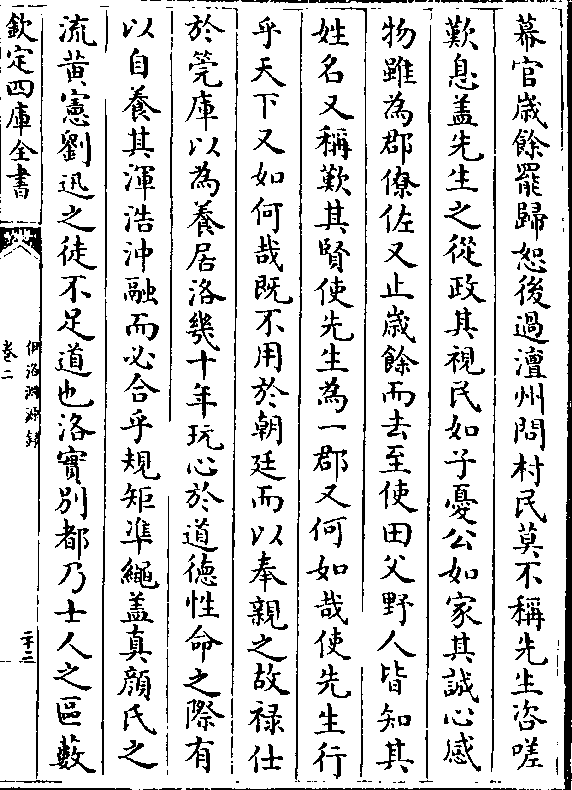 幕官歳餘罷歸恕後過澶州問村民莫不稱先生咨嗟
歎息盖先生之從政其視民如子憂公如家其誠心感
物雖為郡僚佐又止歳餘而去至使田父野人皆知其
姓名又稱歎其賢使先生為一郡又何如哉使先生行
乎天下又如何哉既不用於朝廷而以奉親之故禄仕
於筦庫以為養居洛幾十年玩心於道德性命之際有
以自養其渾浩沖融而必合乎規矩凖繩盖真顔氏之
流黄憲劉迅之徒不足道也洛實别都乃士人之區藪
欽定四庫全書
伊洛淵源録
卷二
二十二